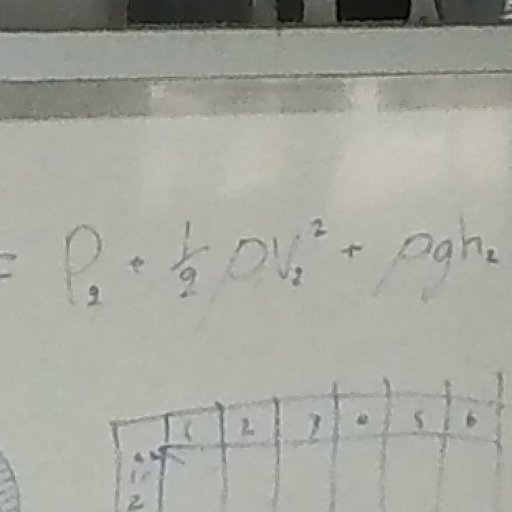 = P₂ + 1/2 ρV₂² + ρgh₂
1 2 3 4 5 6
1
2